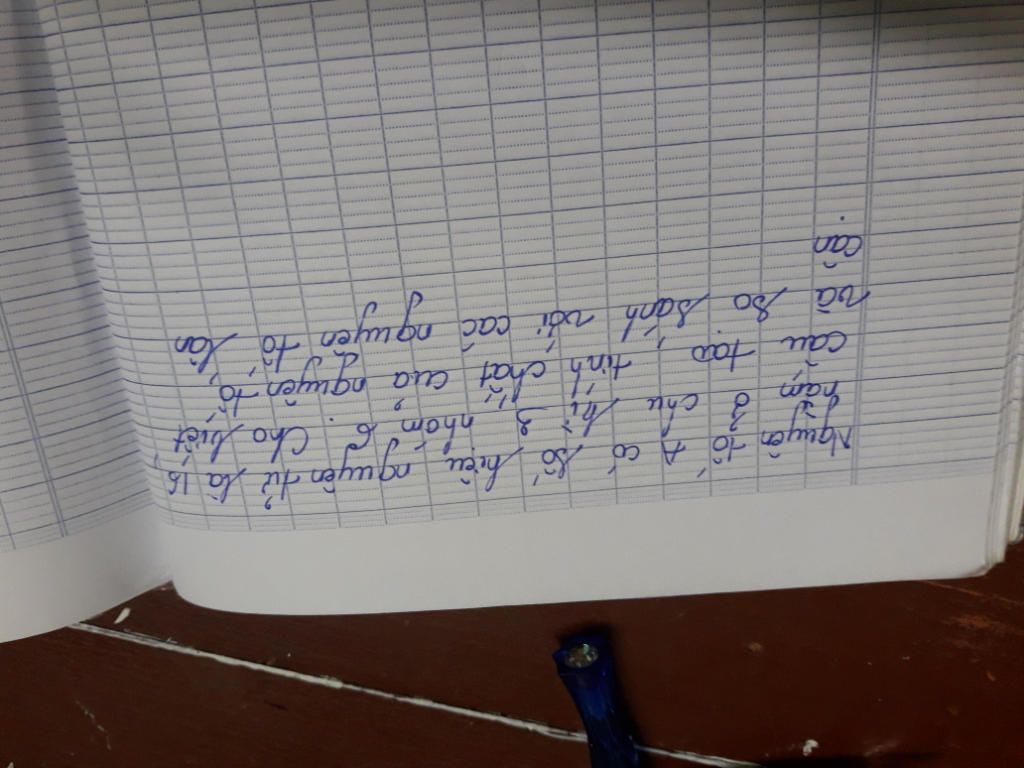 Nguyên tố A có số hiệu nguyên tử là 16,
nằm ở chu kì 3 nhóm 6. Cho biết
cấu tạo, tính chất của nguyên tố
và so sánh với các nguyên tố lân
cận.